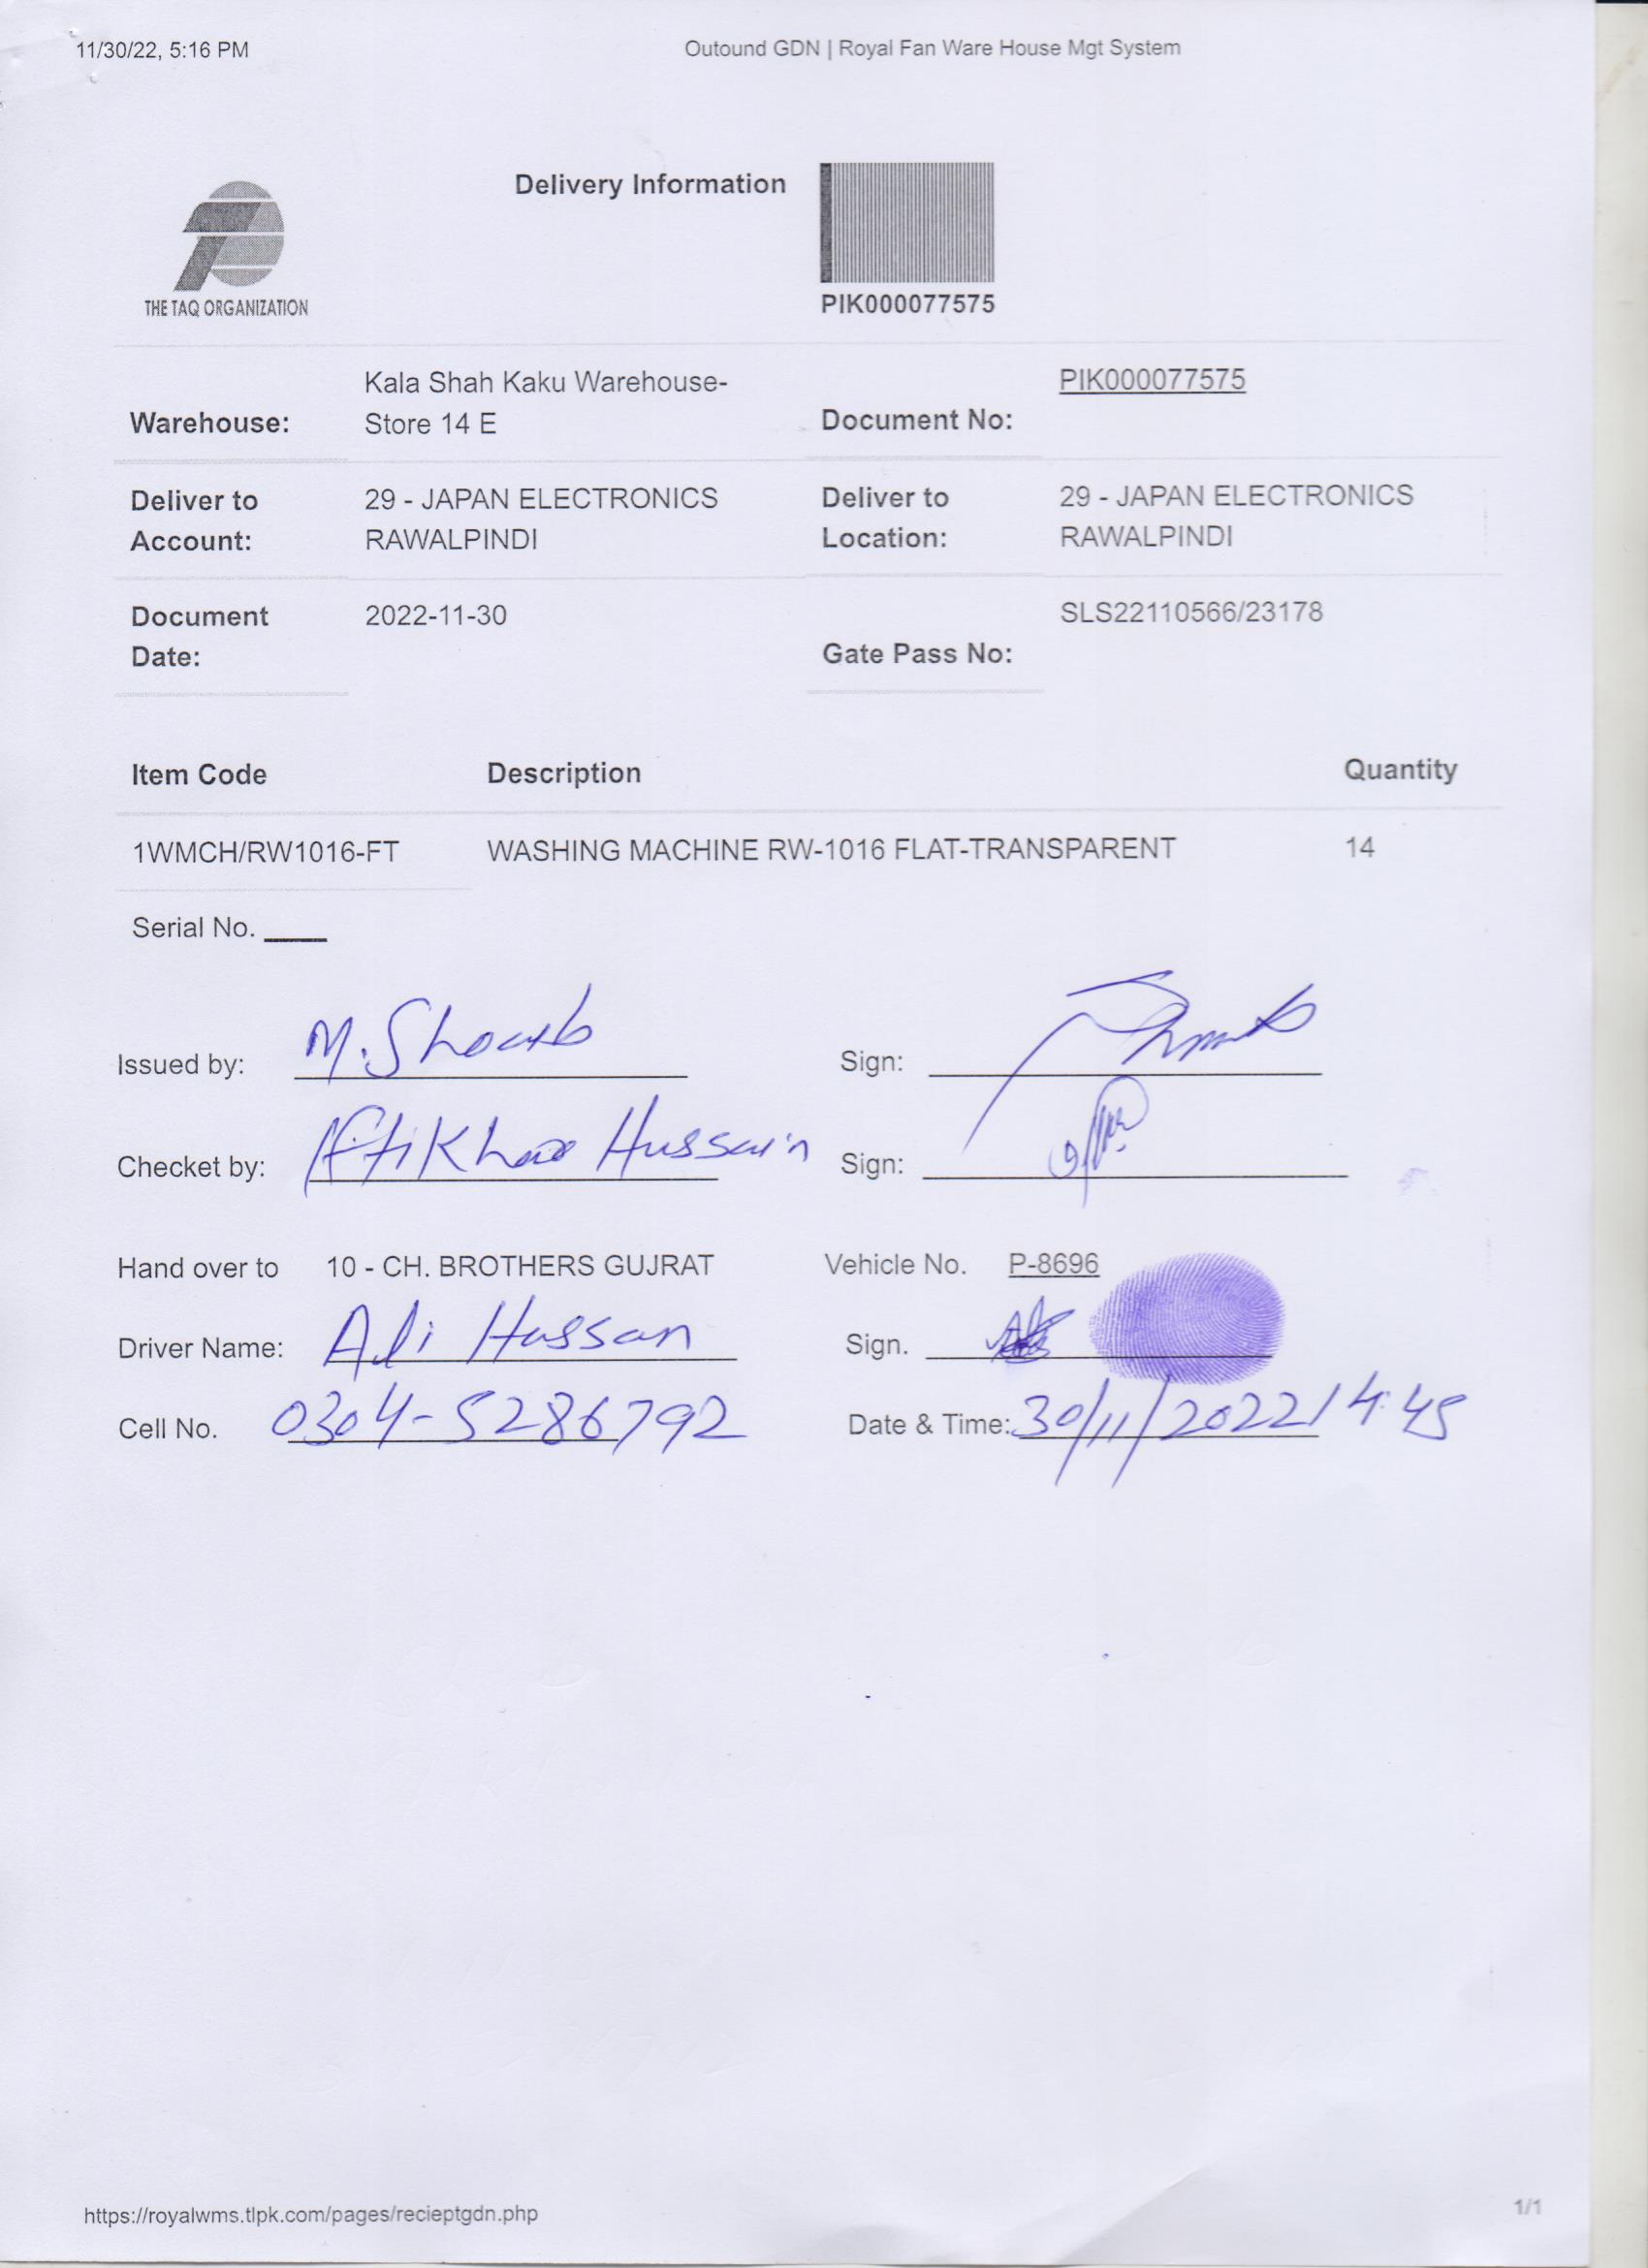 11/30/22, 5:16 PM Outound GDN | Royal Fan Ware House Mgt System
Delivery Information
THE TAQ ORGANIZATION
PIK000077575
Warehouse: Kala Shah Kaku Warehouse-
Store 14 E
Document No: PIK000077575
Deliver to
Account: 29 - JAPAN ELECTRONICS
RAWALPINDI
Deliver to
Location: 29 - JAPAN ELECTRONICS
RAWALPINDI
Document
Date: 2022-11-30
Gate Pass No: SLS22110566/23178
Item Code Description Quantity
1WMCH/RW1016-FT WASHING MACHINE RW-1016 FLAT-TRANSPARENT 14
Serial No.
Issued by: M. Shoaib Sign:
Checket by: Iftikhar Hussain Sign:
Hand over to 10 - CH. BROTHERS GUJRAT Vehicle No. P-8696
Driver Name: Ali Hassan Sign.
Cell No. 0304-5286792 Date & Time: 30/11/2022/4:45
https://royalwms.tlpk.com/pages/recieptgdn.php 1/1